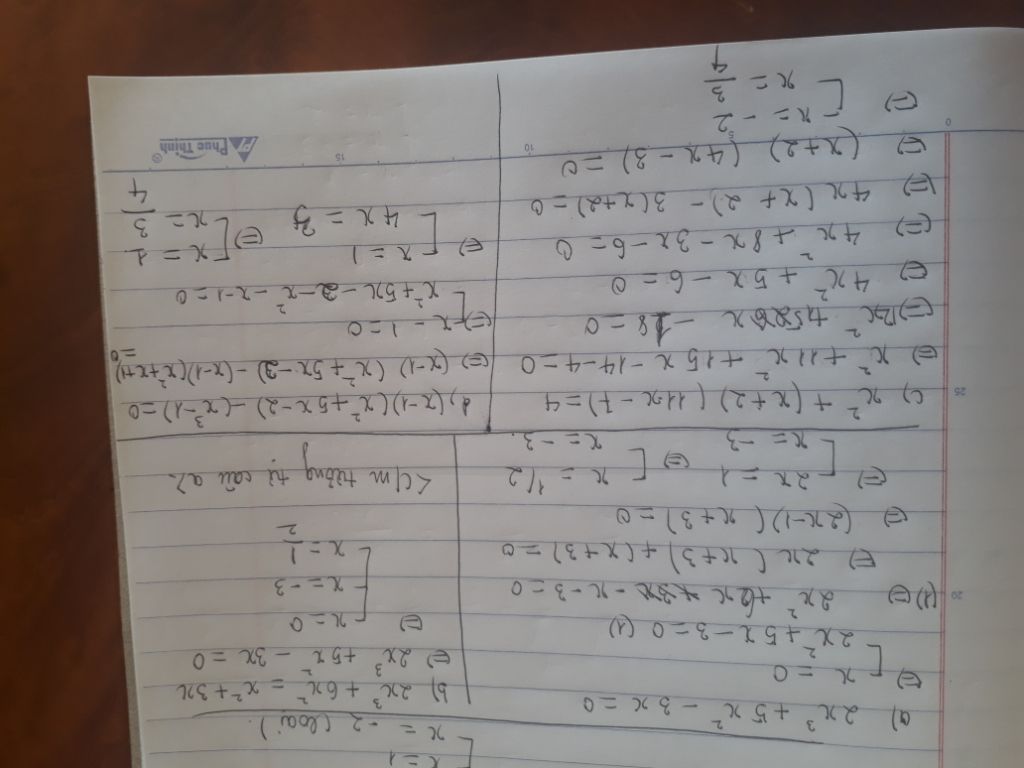 [ x = 1
x = -2 (loại)
a) 2x³ + 5x² - 3x = 0
(=) [ x = 0
2x² + 5x - 3 = 0 (1)
(1) (=) 2x² + 6x - x - 3 = 0
(=) 2x (x+3) + (x+3) = 0
(=) (2x-1) (x+3) = 0
(=) [ 2x = 1 (=) [ x = 1/2
x = -3 x = -3.
b) 2x³ + 6x² = x² + 3x
(=) 2x³ + 5x² - 3x = 0
(=) [ x = 0
x = -3
x = 1/2
<c/m tương tự câu a>.
c) x² + (x+2) (11x-7) = 4
(=) x² + 11x² + 15x - 14 - 4 = 0
(=) 12x² + 15x - 18 = 0
(=) 4x² + 5x - 6 = 0
(=) 4x² + 8x - 3x - 6 = 0
(=) 4x (x+2) - 3(x+2) = 0
(=) (x+2) (4x-3) = 0
(=) [ x = -2
x = 3/4
d, (x-1) (x² + 5x - 2) - (x³-1) = 0
(=) (x-1) (x² + 5x - 2) - (x-1)(x²+x+1) = 0
(=) [ x - 1 = 0
x² + 5x - 2 - x² - x - 1 = 0
(=) [ x = 1 (=) [ x = 1
4x = 3 x = 3/4
Phuc Thinh ®
0 5 10 15
20
25